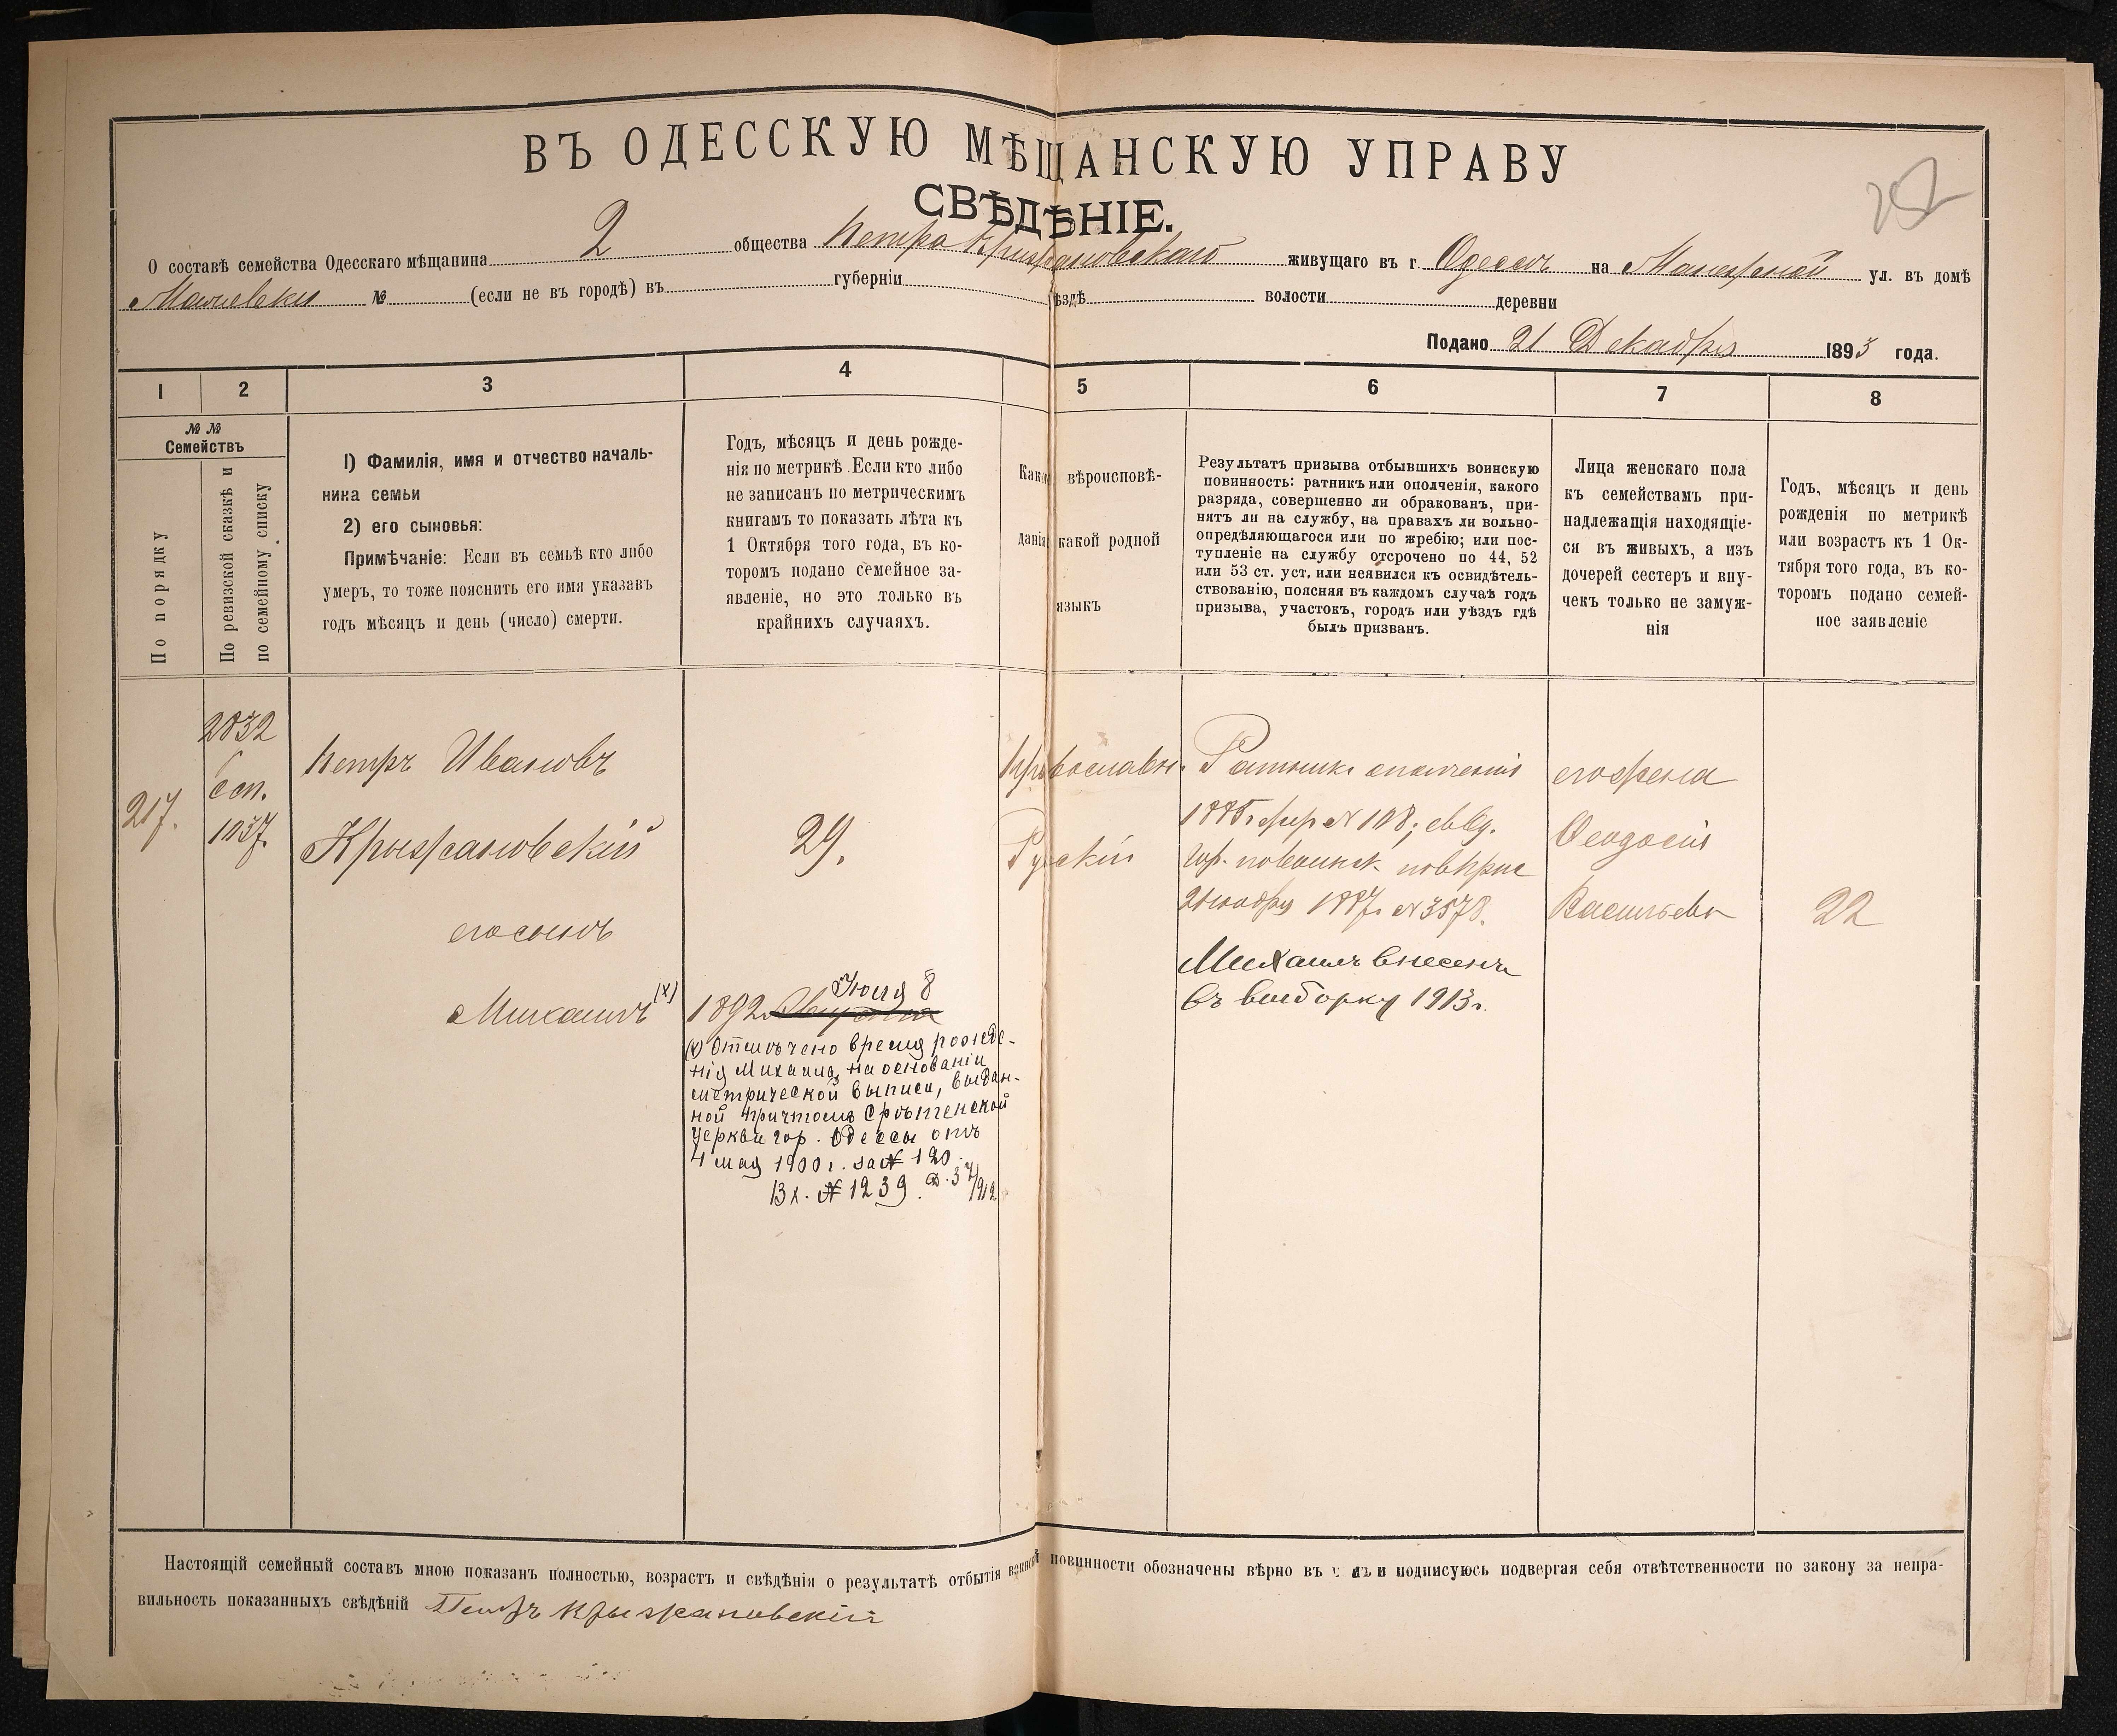 ВЪ ОДЕССКУЮ МѢЩАНСКУЮ УПРАВУ
СВѢДѢНІЕ.
О составѣ семейства Одесскаго мѣщанина 2 общества Петра Крыжановскаго живущаго въ г. Одессѣ на Манежной ул. въ домѣ
№ (если не въ городѣ) въ губерніи ѣздѣ волости деревни
Подано 21 Декабря 1893 года.
1 2 3 4 5 6 7 8
№ №
Семействъ
По порядку
По ревизской сказкѣ и
по семейному списку
1) Фамилія, имя и отчество началь-
ника семьи
2) его сыновья:
Примѣчаніе: Если въ семьѣ кто либо
умеръ, то тоже пояснить его имя указавъ
годъ мѣсяцъ и день (число) смерти.
Годъ, мѣсяцъ и день рожде-
нія по метрикѣ. Если кто либо
не записанъ по метрическимъ
книгамъ то показать лѣта къ
1 Октября того года, въ ко-
торомъ подано семейное за-
явленіе, но это только въ
крайнихъ случаяхъ.
Какого вѣроисповѣ-
данія какой родной
языкъ
Результатъ призыва отбывшихъ воинскую
повинность: ратникъ или ополченія, какого
разряда, совершенно ли обракованъ, при-
нятъ ли на службу, на правахъ ли вольно-
опредѣляющагося или по жребію; или пос-
тупленіе на службу отсрочено по 44, 52
или 53 ст. уст. или неявился къ освидѣтель-
ствованію, поясняя въ каждомъ случаѣ годъ
призыва, участокъ, городъ или уѣздъ гдѣ
былъ призванъ.
Лица женскаго пола
къ семействамъ при-
надлежащія находящіе-
ся въ живыхъ, а изъ
дочерей сестеръ и вну-
чекъ только не замуж-
нія
Годъ, мѣсяцъ и день
рожденія по метрикѣ
или возрастъ къ 1 Ок-
тября того года, въ ко-
торомъ подано семей-
ное заявленіе
217.
2832
сп.
1037.
Петръ Ивановъ
Крыжановскій
его сынъ
Михаилъ (х)
29.
Іюля 8
1892
(х) Отмѣчено время рожде-
нія Михаила, на основаніи
метрической выписи, выдан-
ной причтомъ Срѣтенской
церкви гор. Одессы отъ
4 мая 1900 г. за № 120.
Вх. № 1239. Д. 37/912
Православн.
Русскій
Ратникъ ополченія
1885 г. жер № 108; свид.
гор. по воинск. пов. прис
21 ноября 1887 г. № 3578.
Михаилъ внесенъ
въ выборку 1913 г.
его жена
Феодосія
Васильева
22
Настоящій семейный составъ мною показанъ полностью, возрастъ и свѣдѣнія о результатѣ отбытія воинской повинности обозначены вѣрно въ подписуюсь подвергая себя отвѣтственности по закону за непра-
вильность показанныхъ свѣдѣній Петръ Крыжановскій